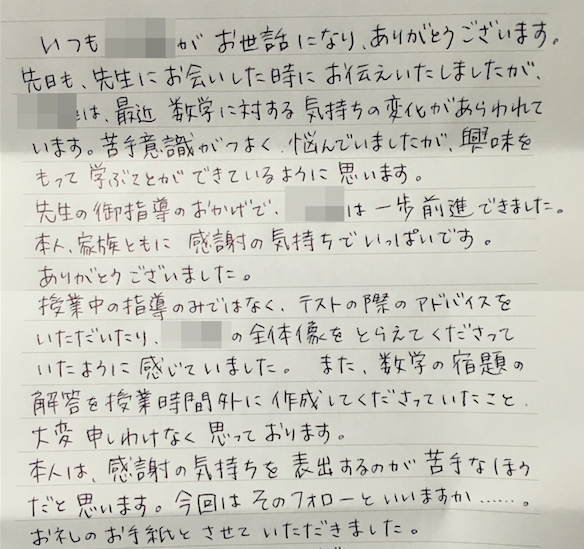 いつも が お世話になり、ありがとうございます。
先日も、先生にお会いした時にお伝えいたしましたが、
は、最近 数学に対する 気持ちの変化があらわれて
います。苦手意識がつよく、悩んでいましたが、興味を
もって 学ぶことが できているように 思います。
先生の御指導のおかげで、 は 一歩前進できました。
本人、家族ともに 感謝の気持ちでいっぱいです。
ありがとうございました。
授業中の指導のみではなく、テストの際のアドバイスを
いただいたり、 の全体像を とらえてくださって
いたように 感じていました。 また、数学の宿題の
解答を授業時間外に作成してくださっていたこと、
大変 申しわけなく 思っております。
本人は、感謝の気持ちを 表出するのが 苦手なほう
だと思います。今回は そのフォローと いいますか……。
お礼のお手紙と させて いただきました。